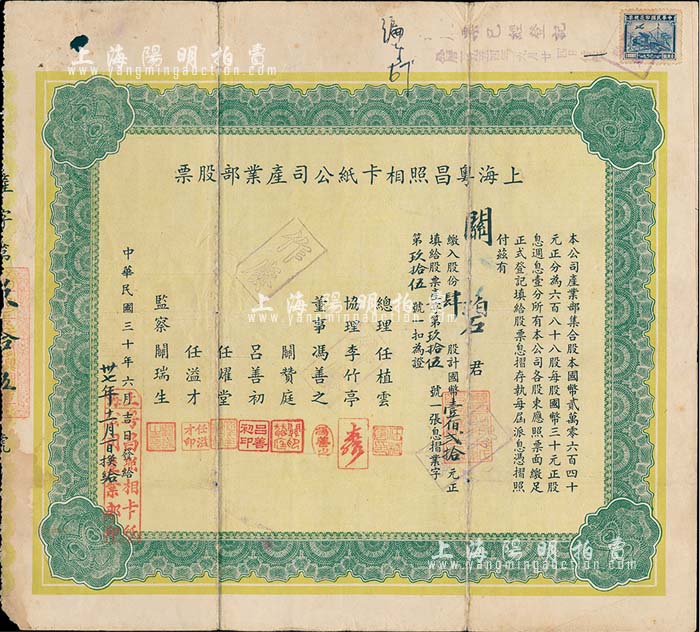 上海陽明拍賣
www.yangmingauction.com
中華民國印花稅票
編
票已經登記
上海粵昌照相卡紙公司產業部股票
本公司產業部集合股本國幣貳萬零六百四十
元正分為六百八十八股每股國幣三十元正股
息週息壹分所有本公司各股東應照票面繳足
正式登記填給股票息摺存執每屆派息憑摺照
付茲有
關 君
繳入股份肆股計國幣壹佰貳拾元正
填給股票 第玖拾伍號 張息摺業字
第玖拾伍號 扣為證
作廢
總理 任植雲
協理 李竹亭
董事 馮善之
關贊庭
呂善初
任耀堂
任溢才
監察 關瑞生
呂善初印
任溢才印
中華民國三十年六月吉日發給
卅七年十一月一日換給
玖拾伍號
上海陽明拍賣
www.yangmingauction.com
上海陽明拍賣
www.yangmingauction.com